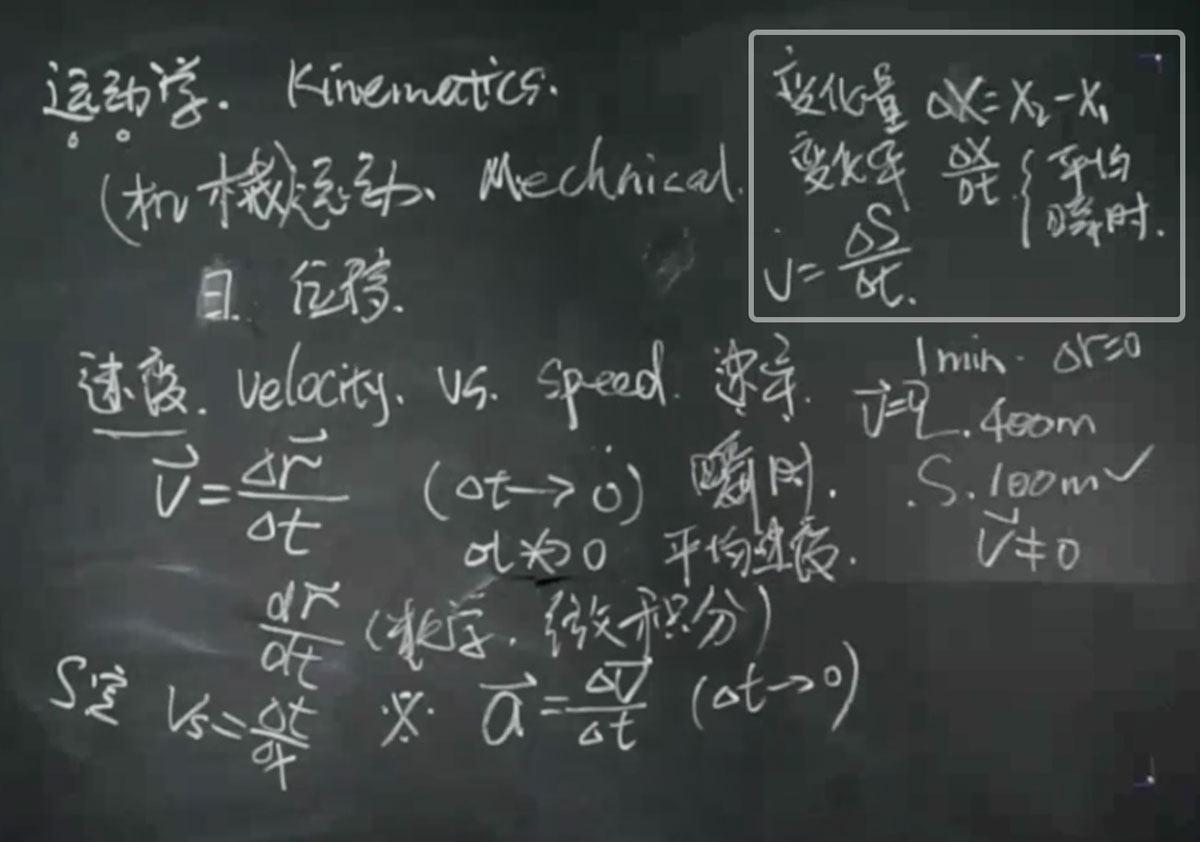 运动学. Kinematics.
(机械运动、Mechnical.
目. 位移.
速度. velocity. vs. speed. 速率.
v⃗ = Δr⃗/Δt (Δt→0) 瞬时.
平均速度.
dr⃗/dt (数学. 微积分)
a⃗ = Δv⃗/Δt (Δt→0)
变化量 ΔX=X₂-X₁
变化率 ΔX/Δt { 平均
瞬时.
v = ΔS/Δt.
1min. Δr=0
400m
.S. 100m✓
v⃗≠0